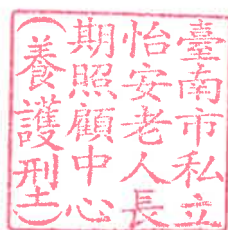 臺南市私立
怡安老人長
期照顧中心
(養護型)